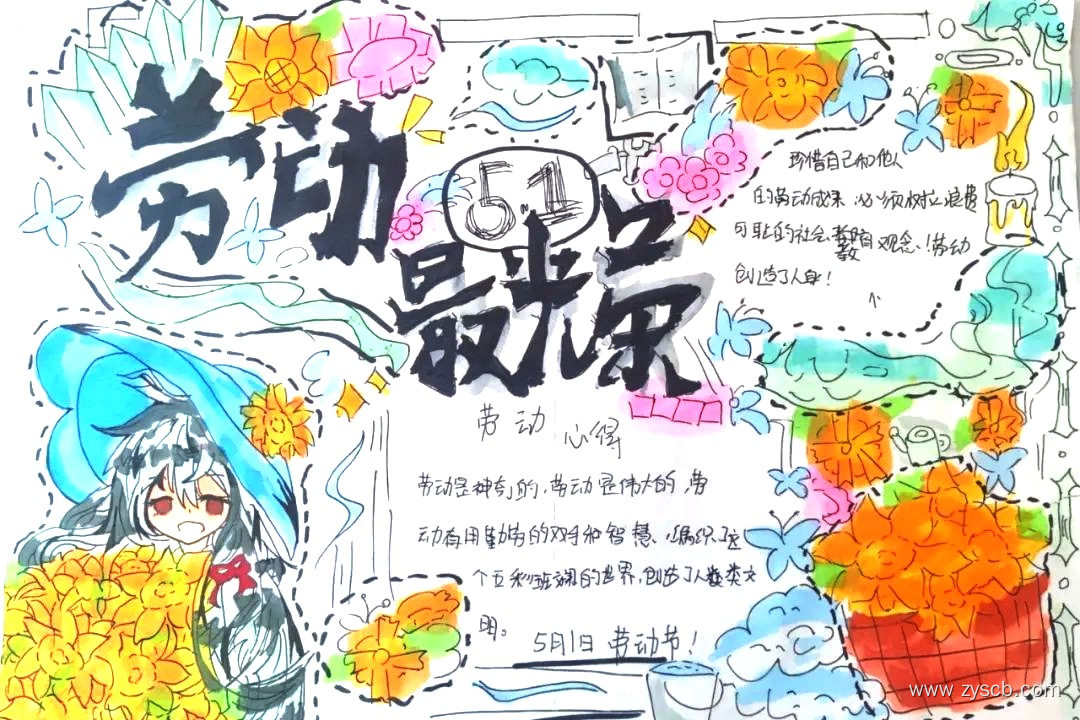 劳动
51
最光荣
珍惜自己和他人
的劳动成果,必须树立浪费
可耻的社会道德观念!劳动
创造了人身!
劳动心得
劳动是神奇的,劳动是伟大的,劳
动者用勤劳的双手和智慧,编织了这
个五彩斑斓的世界,创造了人类文
明。
5月1日劳动节!
www.zyscb.com